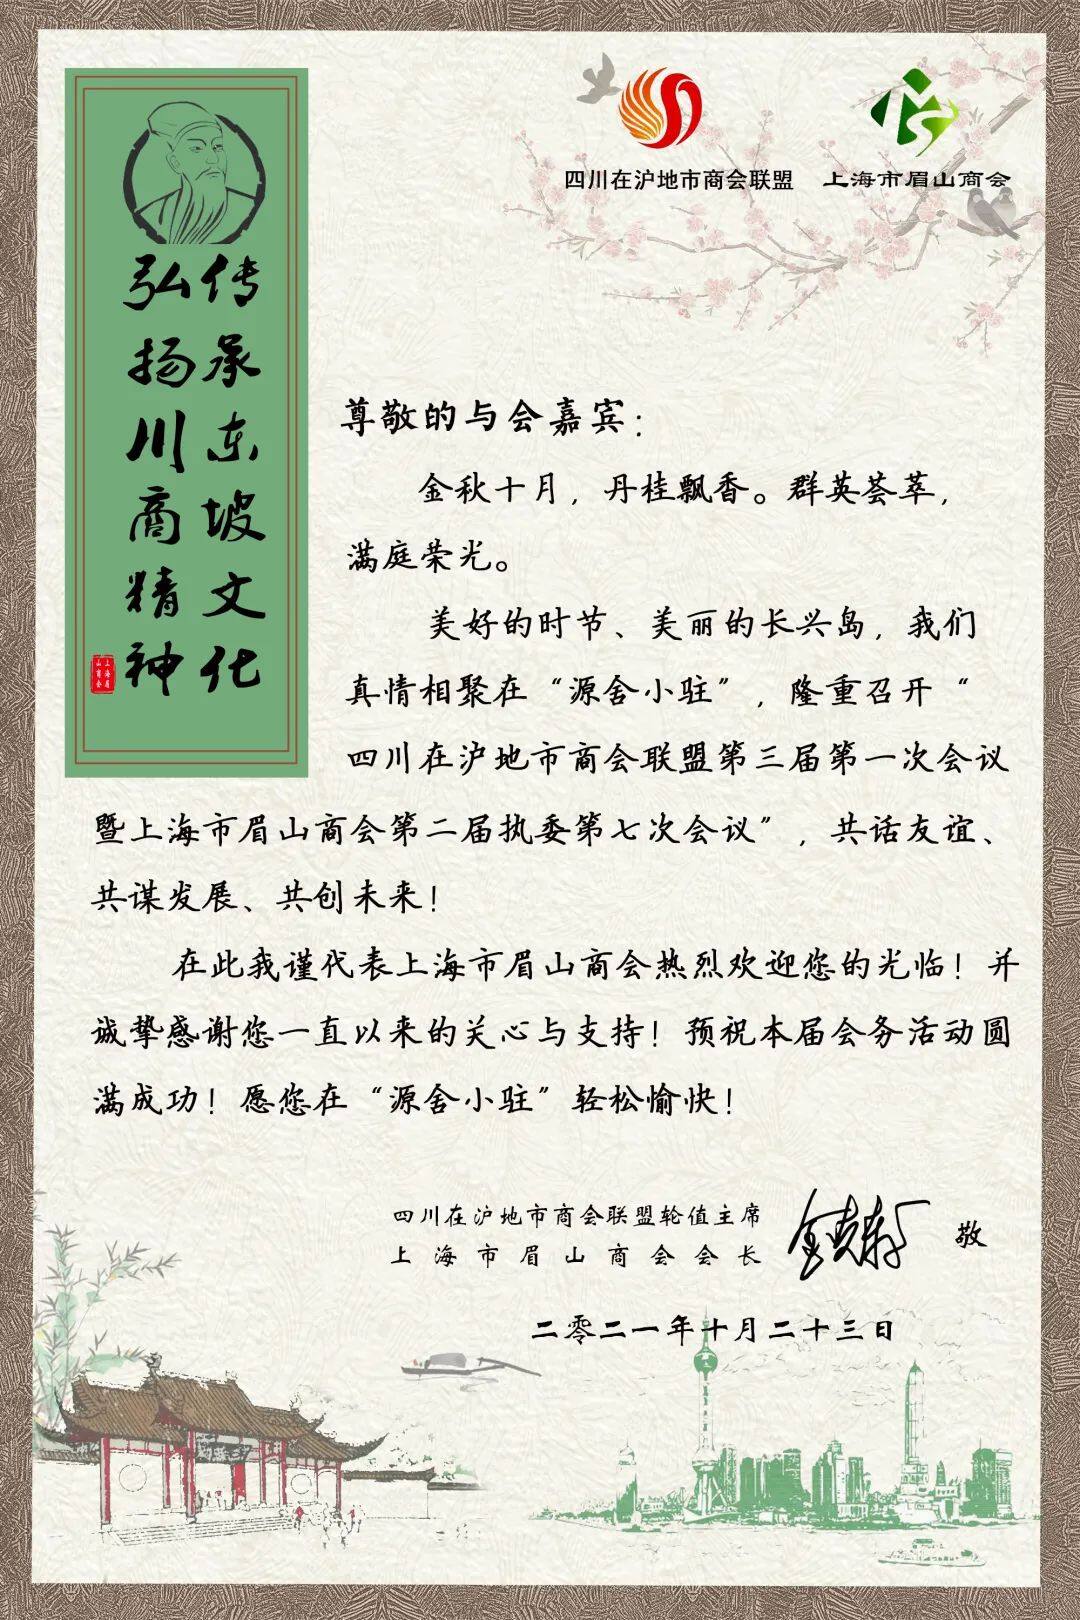 四川在沪地市商会联盟
上海市眉山商会
传承东坡文化
弘扬川商精神
上海眉山商会
尊敬的与会嘉宾：
金秋十月，丹桂飘香。群英荟萃，
满庭荣光。
美好的时节、美丽的长兴岛，我们
真情相聚在“源舍小驻”，隆重召开“
四川在沪地市商会联盟第三届第一次会议
暨上海市眉山商会第二届执委第七次会议”，共话友谊、
共谋发展、共创未来！
在此我谨代表上海市眉山商会热烈欢迎您的光临！并
诚挚感谢您一直以来的关心与支持！预祝本届会务活动圆
满成功！愿您在“源舍小驻”轻松愉快！
四川在沪地市商会联盟轮值主席
上海市眉山商会会长
敬
二零二一年十月二十三日